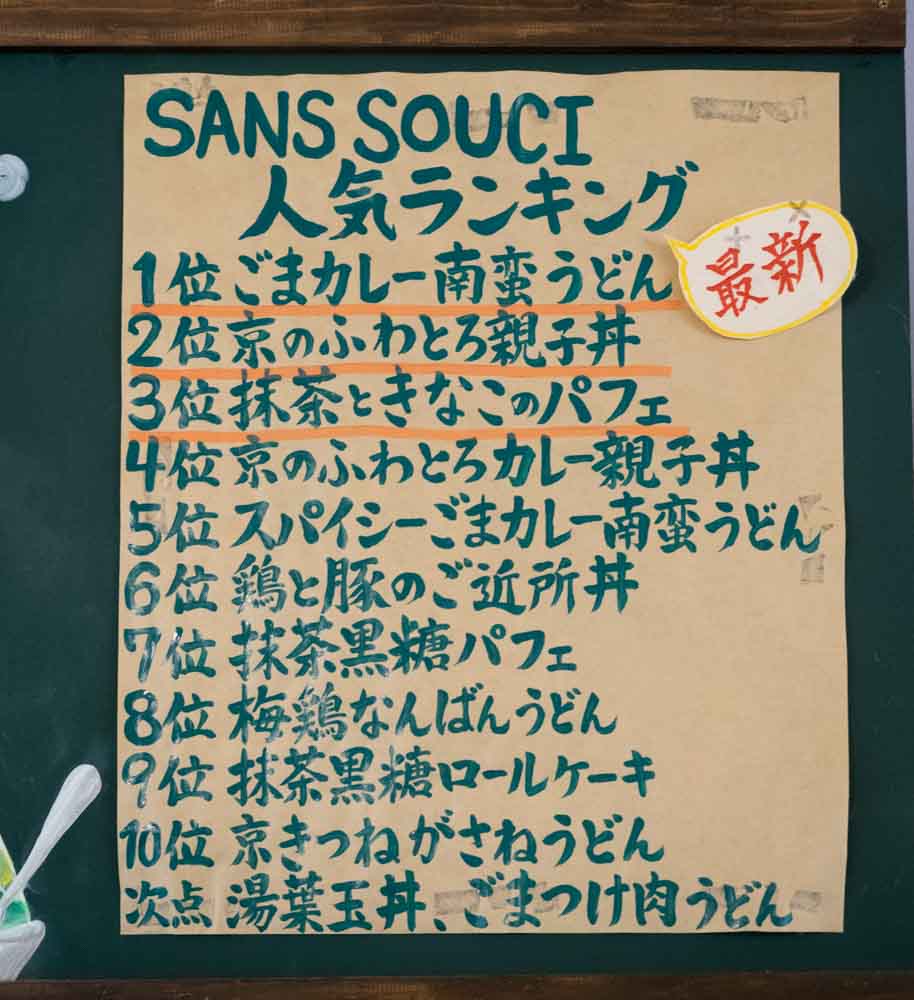 SANS SOUCI
人気ランキング
最新
1位 ごまカレー南蛮うどん
2位 京のふわとろ親子丼
3位 抹茶ときなこのパフェ
4位 京のふわとろカレー親子丼
5位 スパイシーごまカレー南蛮うどん
6位 鶏と豚のご近所丼
7位 抹茶黒糖パフェ
8位 梅鶏なんばんうどん
9位 抹茶黒糖ロールケーキ
10位 京きつねがさねうどん
次点 湯葉玉丼、ごまつけ肉うどん